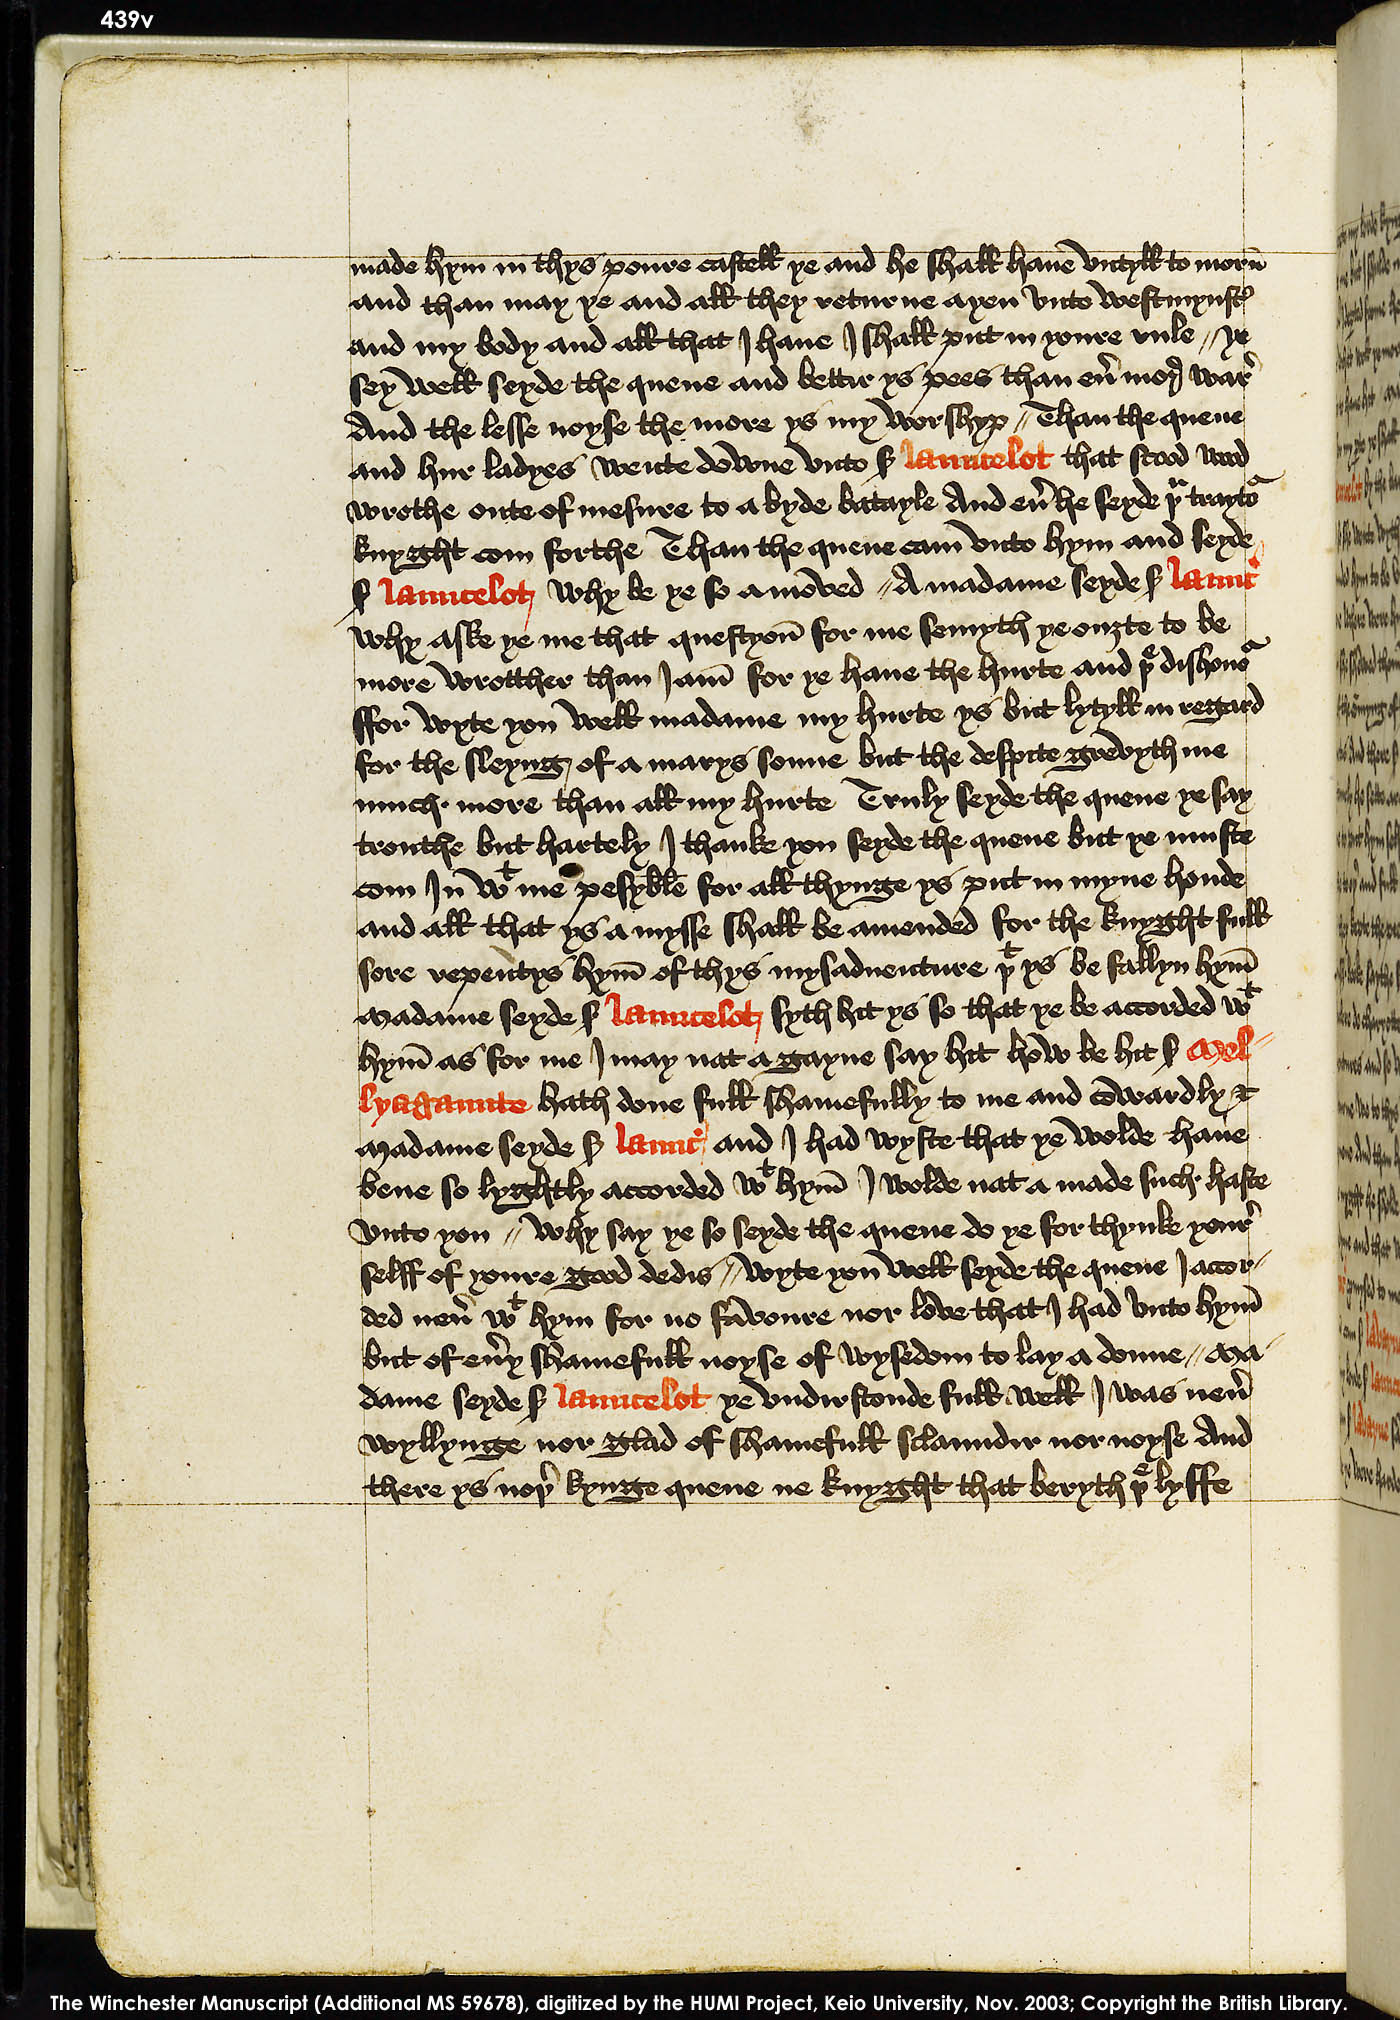 439v
made hym in thys poure castell ye and he shall haue vntyll to morn̄
and than may ye and all they returne ayen vnto westmynst̄
and my body and all that I haue I shall put in youre rule // ye
sey well seyde the quene and bettir ys pees than eu̾ mor̾ war̾
And the lesse noyse the more ys my worshyp // Than the quene
and hur ladyes wente downe vnto ẞ launcelot that stood wood
wrothe oute of mesure to a byde batayle And eu̾ he seyde þᵘ traytoʳ
knyght com forthe Than the quene cam̄ vnto hym and seyde
ẞ launcelot why be ye so amoved // A madame seyde ẞ launc̾
why aske ye me that questyon̄ for me semyth ye ouȝte to be
more wrotther than I am̄ for ye haue the hurte and þᵉ dishonoʳ
ffor wyte you well madame my hurte ys but lytyll in regard
for the sleyng of a marys sonne but the despite grevyth me
much more than all my hurte Truly seyde the quene ye say
trouthe but hartely I thanke you seyde the quene but ye muste
com In wᵗ me pesyble for all thynge ys put in myne honde
and all that ys amysse shall be amended for the knyght full
sore repentys hym̄ of thys mysaduenture þᵗ ys be fallyn hym̄
Madame seyde ẞ launcelot syth hit ys so that ye be accorded wᵗ
hym̄ as for me I may nat agayne say hit how be hit ẞ Mel-
lyagaunte hath done full shamefully to me and cowardly &
Madame seyde ẞ launc̾ and I had wyste that ye wolde haue
bene so lyghtly accorded wᵗ hym̄ I wolde nat a made such haste
vnto you // why say ye so seyde the quene do ye for thynke your̾
selff of youre good dedis // wyte you well seyde the quene I accor-
ded neu̾ wᵗ hym for no favoure nor love that I had vnto hym̄
but of eu̾y shamefull noyse of wysedom to lay adoune // Ma-
dame seyde ẞ launcelot ye vndirstonde full well I was neu̾
wyllynge nor glad of shamefull sclaundir nor noyse And
there ys noþ̾ kynge quene ne knyght that beryth þᵉ lyffe
The Winchester Manuscript (Additional MS 59678), digitized by the HUMI Project, Keio University, Nov. 2003; Copyright the British Library.